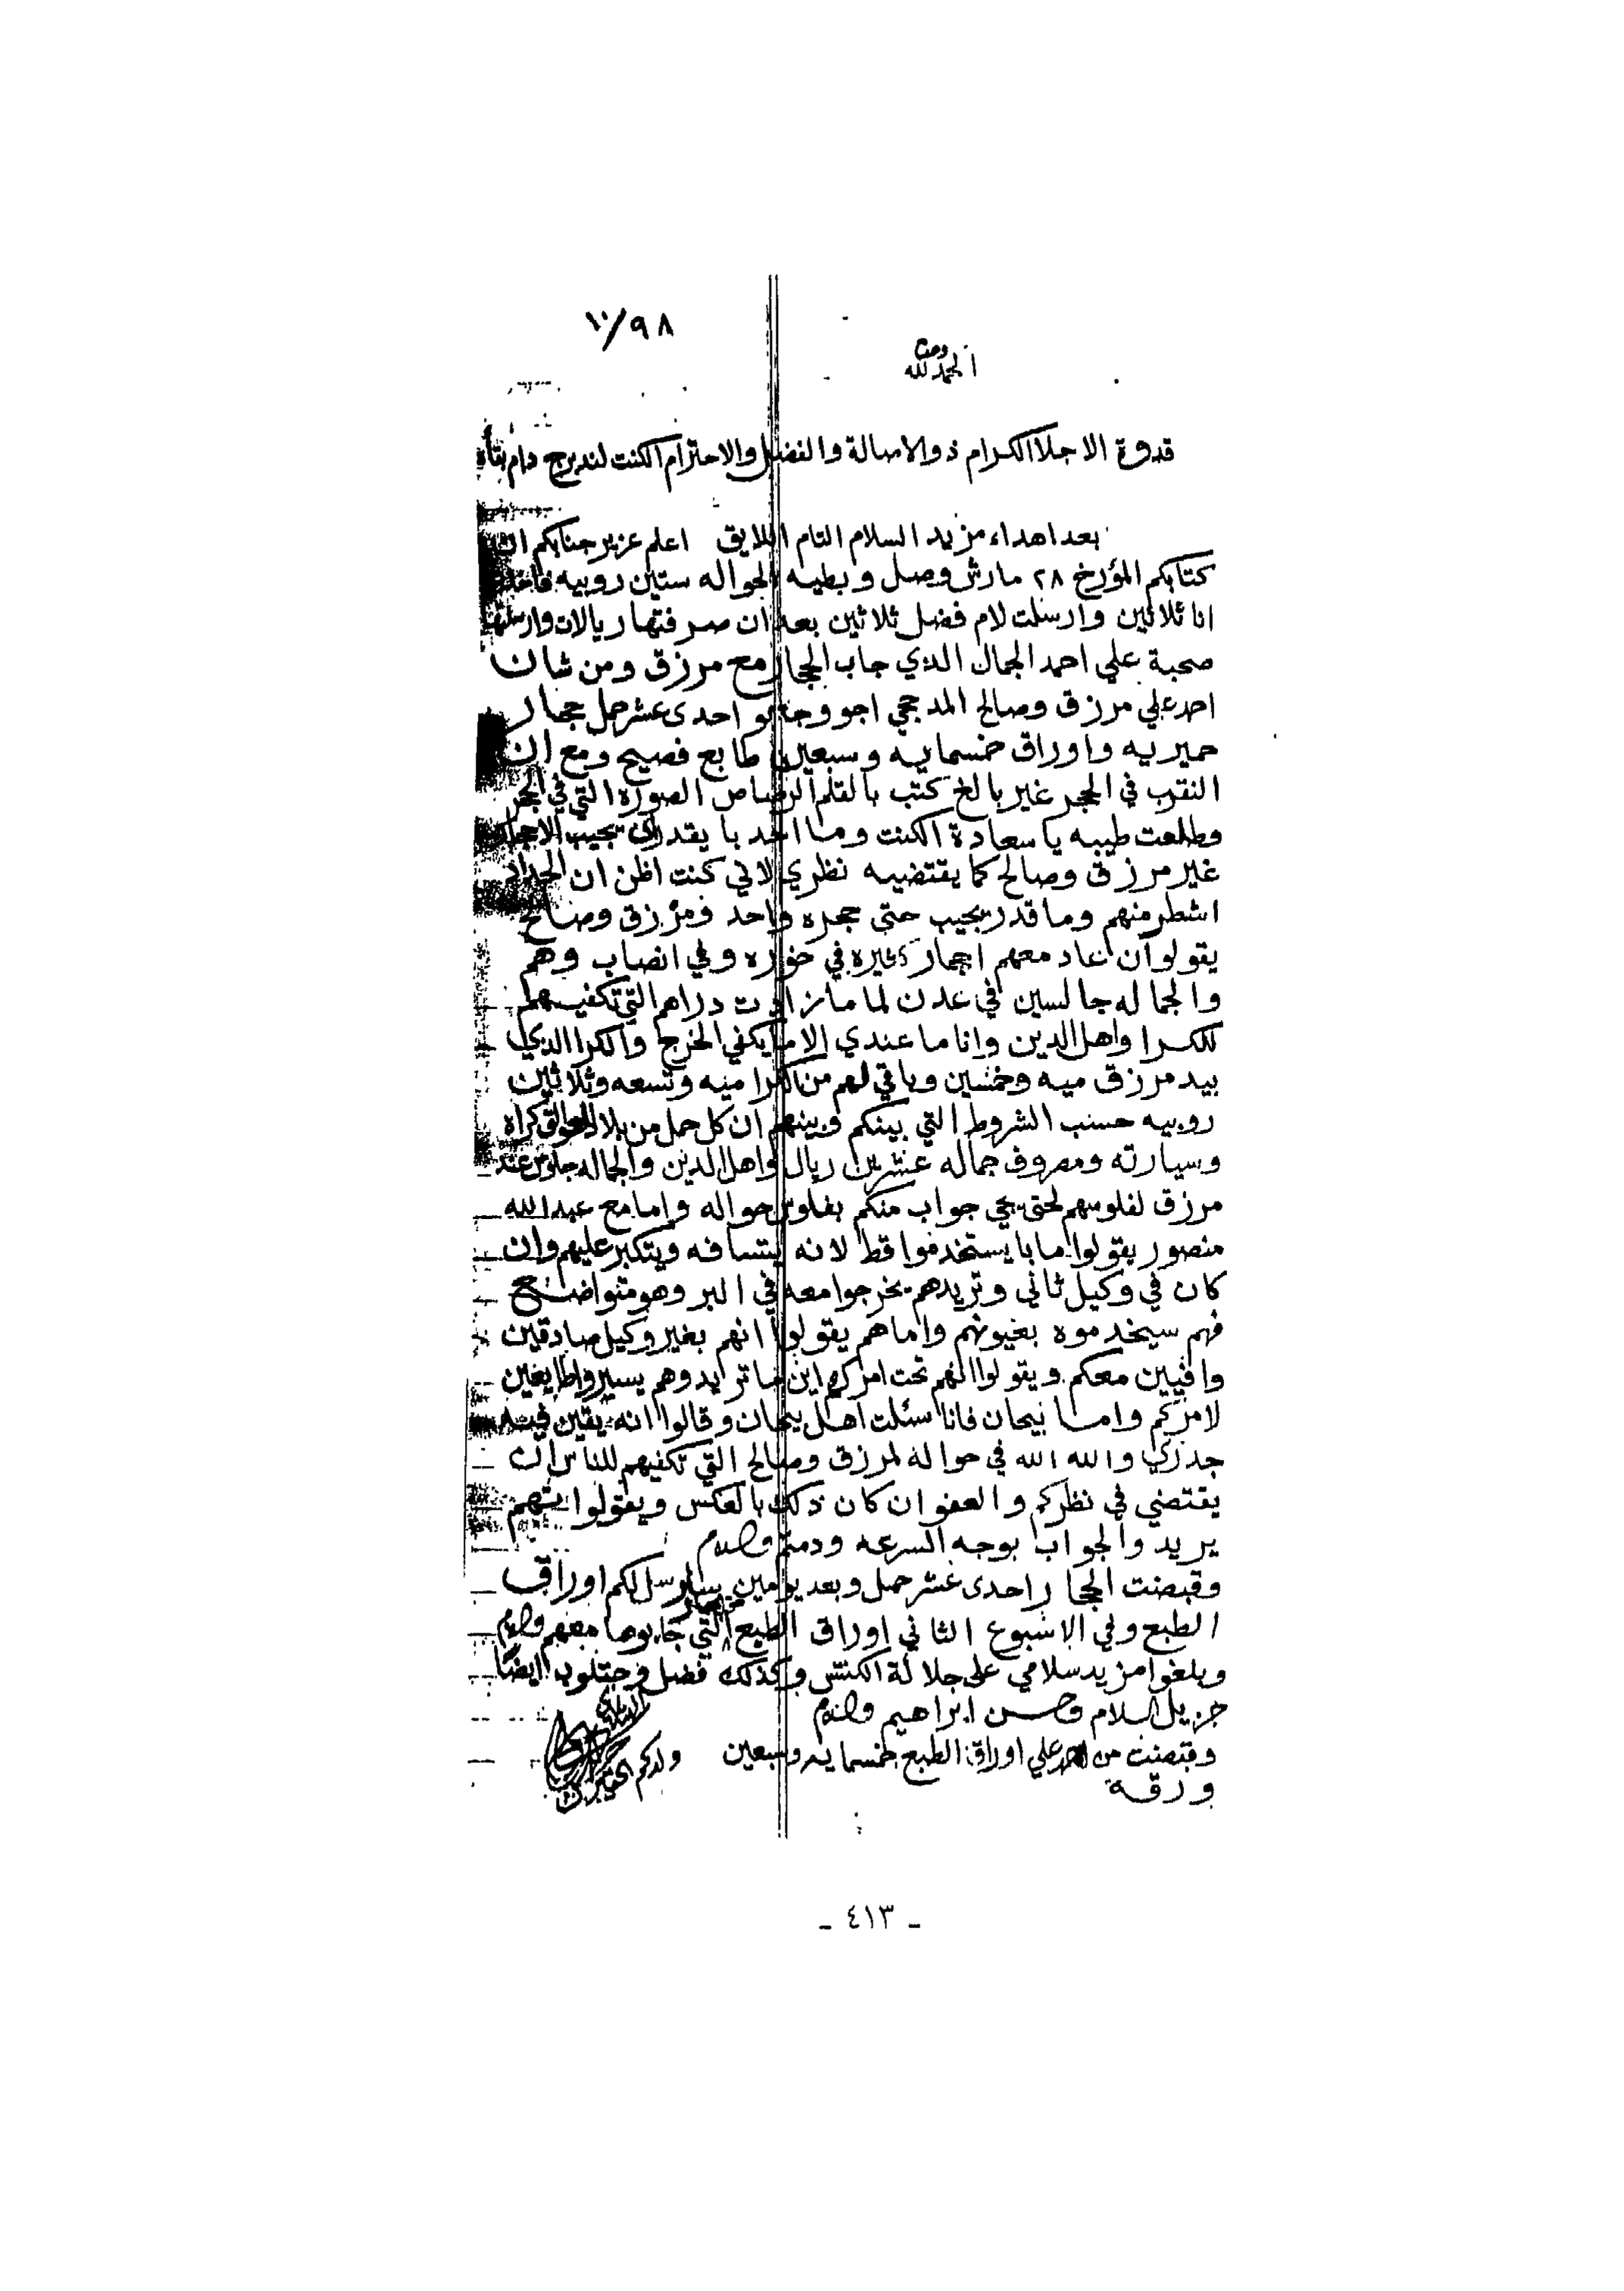 ١٠/٩٨
الحمد لله وحده
قدوة الاجلا الكرام ذو الاصالة والفضل والاحترام الكنت لندبرج دام بقاه
بعد اهداء مزيد السلام التام اللايق اعلم عزيز جنابكم ان
كتابكم المؤرخ ٢٨ مارش وصل وبطيه الحواله ستين روبيه فاخذت
انا ثلاثين وارسلت لام فضل ثلاثين بعد ان صرفتها ريالات وارسلتها
صحبة علي احمد الجمال الذي جاب الحجار مع مرزق ومن شان
احمد علي مرزق وصالح المدحجي اجو وجابو احدى عشر حمل حجار
حميريه واوراق خمسمايه وسبعين طابع فصيح ومع ان
النقرب في الحجر غير بالغ كتب بالقلم الرصاص الصورة التي في الحجر
وطلعت طيبه يا سعادة الكنت وما احد با يقدر يجيب الاحجار
غير مرزق وصالح كما يقتضيه نظري لاني كنت اظن ان الحداد
اشطر منهم وما قدر يجيب حتى حجره واحد ومرزق وصالح
يقولو ان عاد معهم احجار كثيره في خوره وفي انصاب وهم
والجماله جالسين في عدن لما ما زادت دراهم التي تكفيهم
للكرا واهل الدين وانا ما عندي الا ما يكفي الخرج والكرا الذي
بيد مرزق ميه وخمسين وباقي لهم من الكرا ميه وتسعه وثلاثين
روبيه حسب الشروط التي بينكم وبينهم ان كل حمل من بلاد العوالق كراه
وسيارته ومصروف جماله عشرين ريال واهل الدين والجماله جلوس عند
مرزق لفلوسهم لحتى يجي جواب منكم بفلوس حواله واما مع عبد الله
منصور يقولوا ما با يستخدموا قط لانه يتسافه ويتكبر عليهم وان
كان في وكيل ثاني وتريدهم يخرجوا معه في البر وهو متواضع
فهم سيخدموه بعيونهم واما هم يقولوا انهم بغير وكيل صادقين
وافيين معكم ويقولوا انهم تحت امركم اين ما تريدوهم يسيروا طايعين
لامركم واما بيحان فانا اسئلت اهل بيحان وقالوا انه يقين فيه
جدري والله الله في حواله لمرزق وصالح التي تكفيهم للناس ان
يقتضي في نظركم والعفو ان كان ذلك بالعكس ويقولوا
يريد والجواب بوجه السرعه ودمتم والسلام
وقبضت الحجار احدى عشر حمل وبعد يومين سارسل لكم اوراق
الطبع وفي الاسبوع الثاني اوراق الطبع التي جابوها معهم والسلام
وبلغوا مزيد سلامي على جلالة الكنتس وكذلك فضل وحتلوب ايضًا
جزيل السلام وحسن ابراهيم والسلام
وقبضت من احمد علي اوراق الطبع خمسمايه وسبعين ولدكم
ورقة
- ٤١٣ -